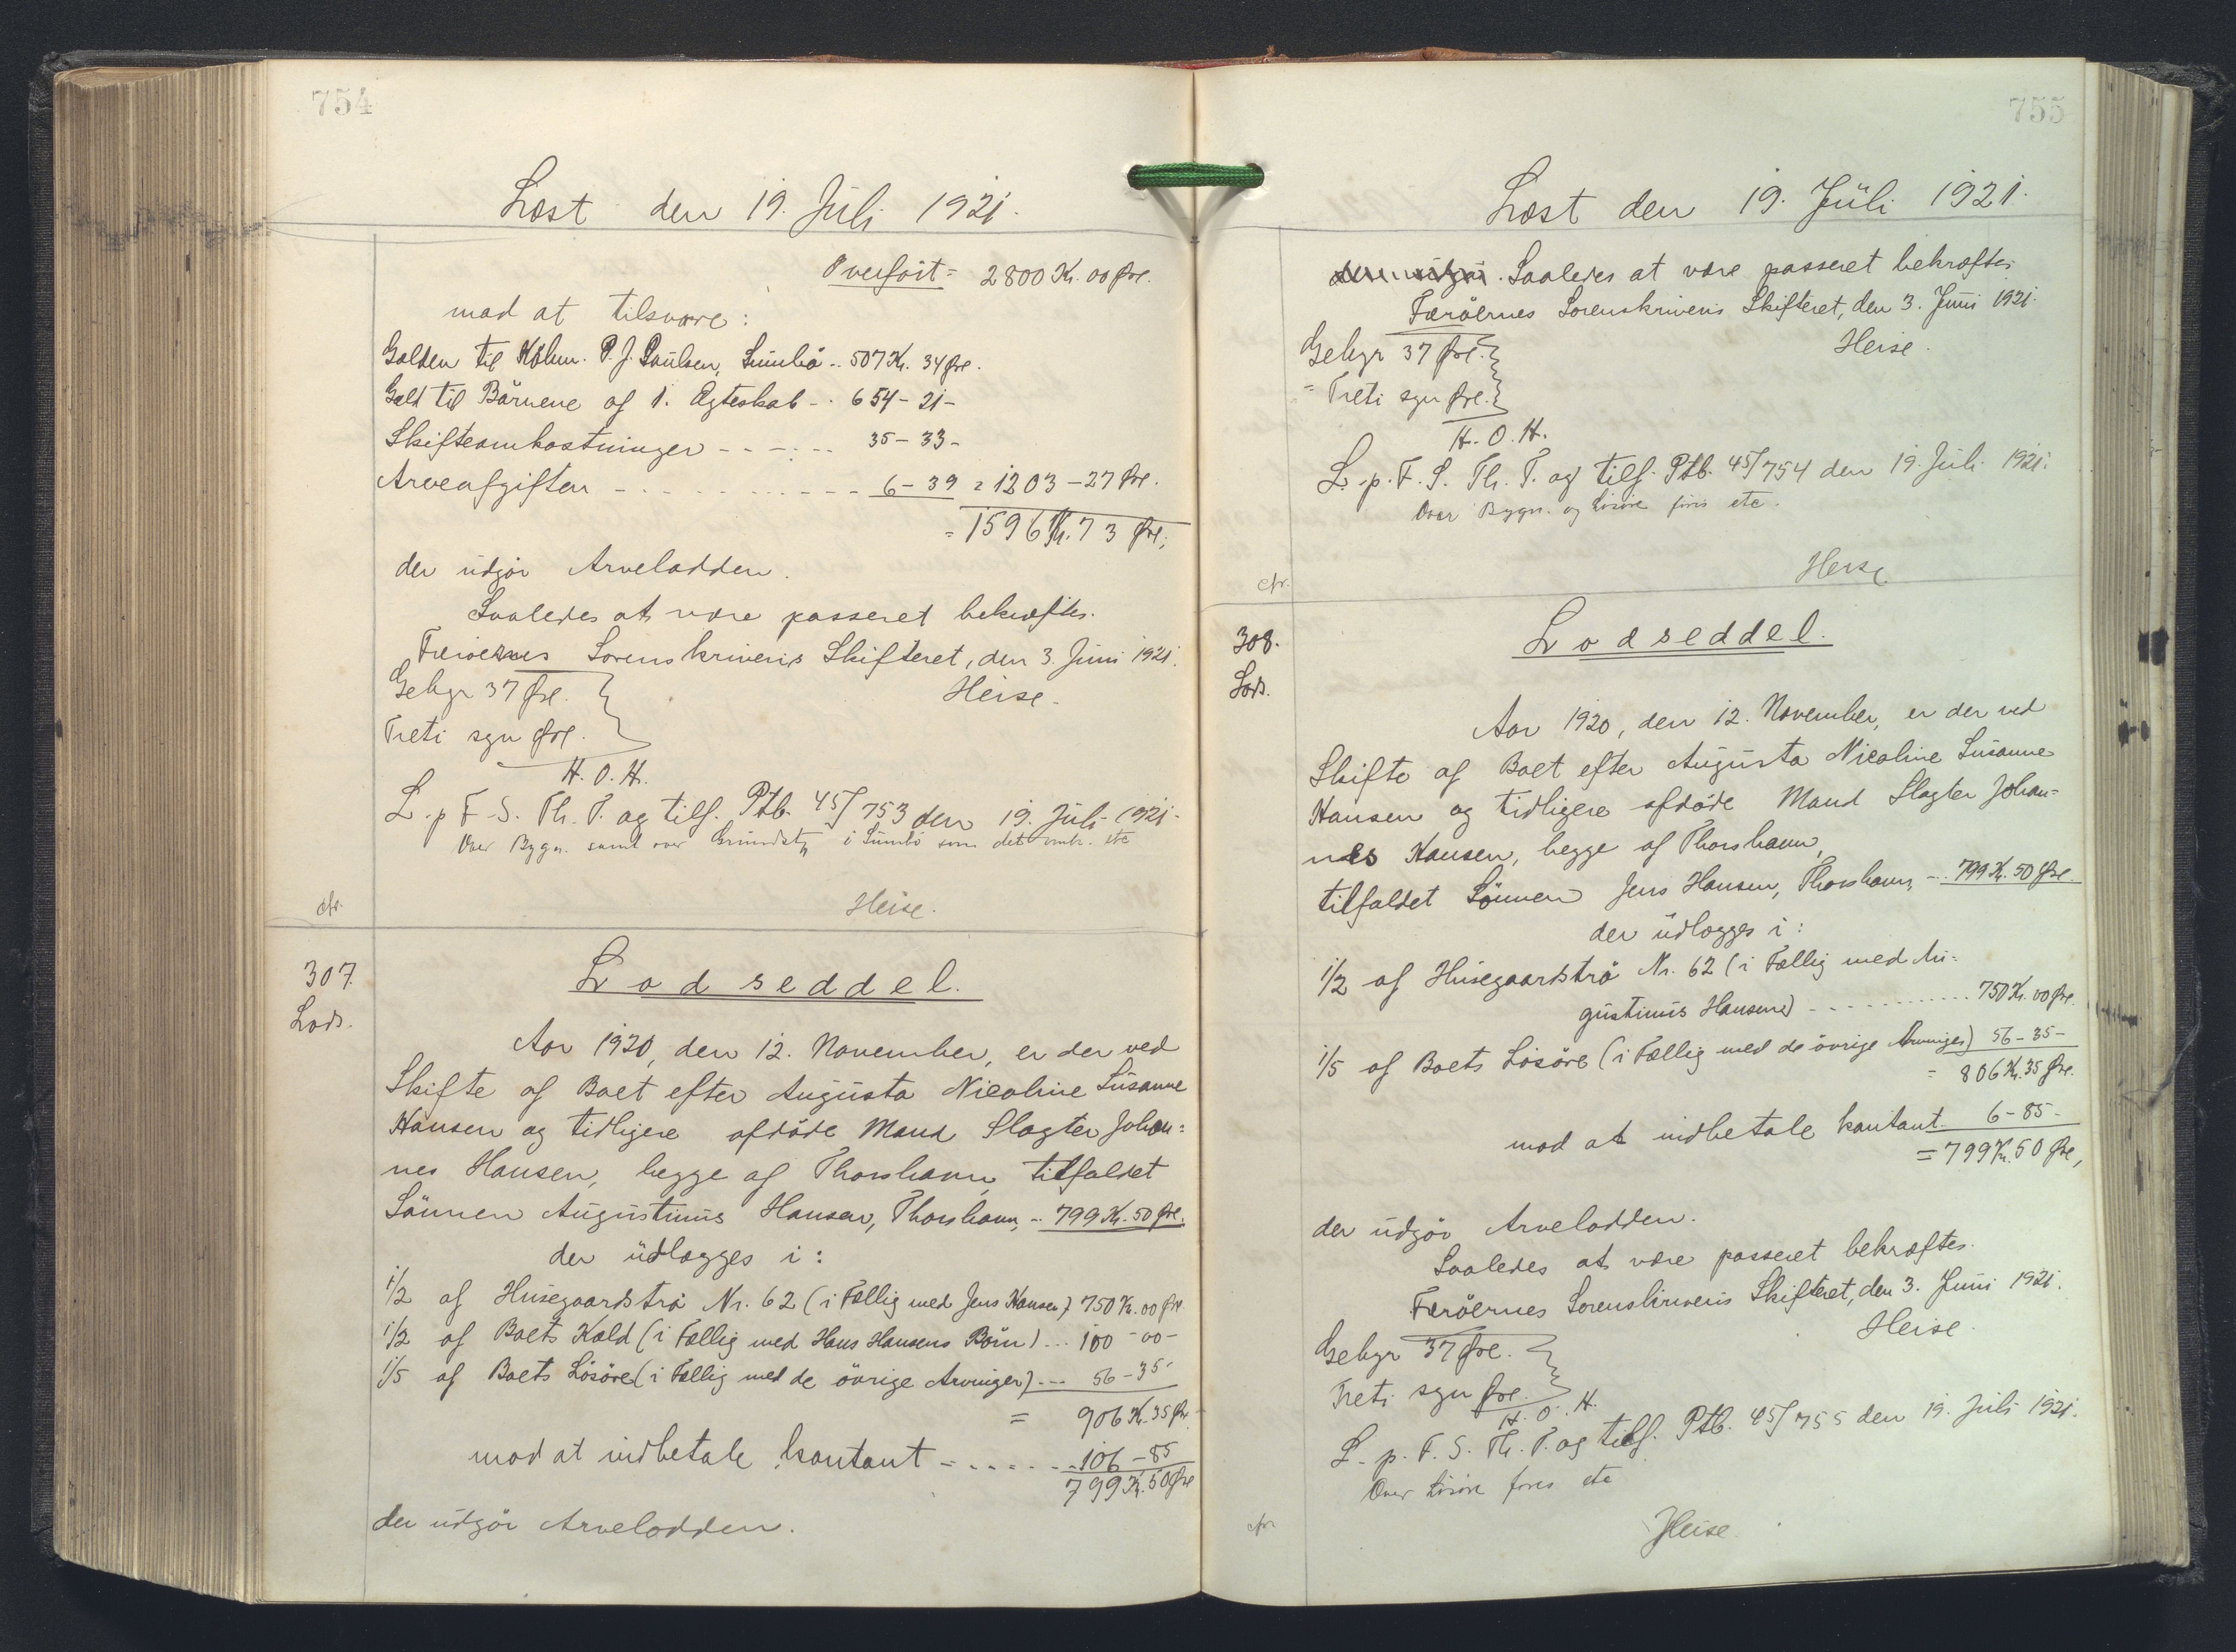 754
Læst den 19. Juli 1921.
Overført = 2800 Kr. 00 Øre.
mod at tilsvare:
Gælden til Köbm. P. J. Poulsen, Sumbö .. 507 Kr. 34 Øre.
Gæld til Börnene af 1. Ægteskab - . 654 - 21 -
Skifteomkostninger - - - - - - 35 - 33 -
Arveafgiften - - - - - - - - - - 6 - 39 = 1203 - 27 Øre.
= 1596 Kr. 73 Øre,
der udgör Arvelodden.
Saaledes at være passeret bekræftes.
Færöernes Sorenskriveris Skifteret, den 3. Juni 1921.
Gebyr 37 Øre.
Heise.
Treti syv Øre.
H. O. H.
L. p. F. S. Th. T. og tilf. Ptb. 45/753 den 19. Juli 1921.
Over Bygn. samt over Grundst. i Sumbö som det omh. etc
cfr.
Heise.
307.
Lods.
Lodseddel.
Aar 1920, den 12. November, er der ved
Skifte af Boet efter Augusta Nicoline Susanne
Hansen og tidligere afdöde Mand Slagter Johan=
nes Hansen, begge af Thorshavn, tilfaldet
Sönnen Augustinus Hansen, Thorshavn, - 799 Kr. 50 Øre.
der udlægges i:
1/2 af Husegaardstrå Nr. 62 (i Fællig med Jens Hansen) 750 Kr. 00 Øre
1/2 af Boets Kald (i Fællig med Hans Hansens Börn) ... 100 - 00 -
1/5 af Boets Lösöre (i Fællig med de övrige Arvinger) ... 56 - 35 -
= 906 Kr. 35 Øre
mod at indbetale kontant - - - - - - 106 - 85
799 Kr. 50 Øre
der udgör Arvelodden.
755
Læst den 19. Juli 1921.
der udgör. Saaledes at være passeret bekræftes
Færöernes Sorenskriveris Skifteret, den 3. Juni 1921.
Gebyr 37 Øre.
Heise.
= Treti syv Øre.
H. O. H.
L. p. F. S. Th. T. og tilf. Ptb. 45/754 den 19. Juli 1921.
Over Bygn. og Lösöre föres etc.
cfr.
Heise
308.
Lods.
Lodseddel.
Aar 1920, den 12. November, er der ved
Skifte af Boet efter Augusta Nicoline Susanne
Hansen og tidligere afdöde Mand Slagter Johan=
nes Hansen, begge af Thorshavn,
tilfaldet Sönnen Jens Hansen, Thorshavn, - 799 Kr. 50 Øre.
der udlægges i:
1/2 af Husegaardstrå Nr. 62 (i Fællig med Au=
gustinus Hansen) - - - - - - - - 750 Kr. 00 Øre.
1/5 af Boets Lösöre (i Fællig med de övrige Arvinger) 56 - 35 -
= 806 Kr. 35 Øre.
mod at indbetale kontant 6 - 85 -
= 799 Kr. 50 Øre,
der udgör Arvelodden.
Saaledes at være passeret bekræftes.
Færöernes Sorenskriveris Skifteret, den 3. Juni 1921.
Gebyr 37 Øre.
Heise.
Treti syv Øre.
H. O. H.
L. p. F. S. Th. T. og tilf. Ptb. 45/755 den 19. Juli 1921.
Over Lösöre föres etc
cfr
Heise.